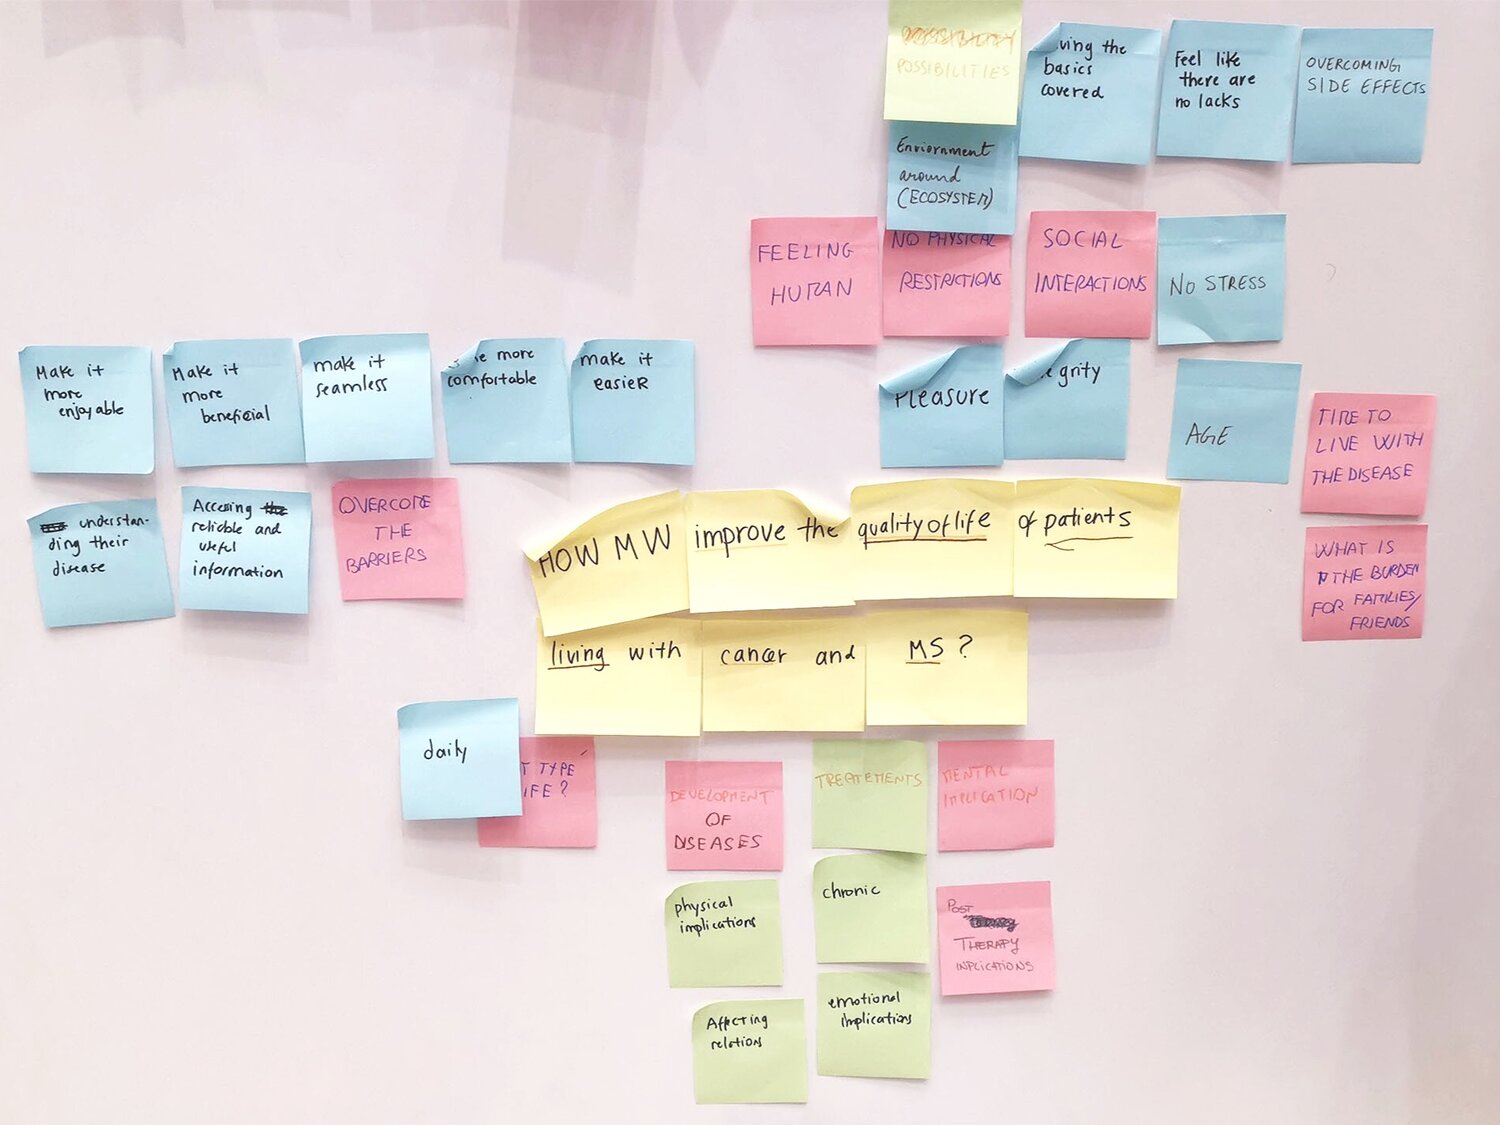 POSSIBILITIES
ving the
basics
covered
Feel like
there are
no lacks
OVERCOMING
SIDE EFFECTS
Enviornment
around
(ECOSYSTEM)
FEELING
HUMAN
NO PHYSICAL
RESTRICTIONS
SOCIAL
INTERACTIONS
NO STRESS
Make it
more
enjoyable
Make it
more
beneficial
make it
seamless
more
comfortable
make it
easier
Pleasure
egrity
AGE
TIME TO
LIVE WITH
THE DISEASE
understan-
ding their
disease
Accesing
relicble and
useful
information
OVERCOME
THE
BARRIERS
HOW MW improve the quality of life of patients
living with cancer and MS?
WHAT IS
THE BURDEN
FOR FAMILIES/
FRIENDS
daily
T TYPE
IFE?
DEVELOPMENT
OF
DISEASES
TREATEMENTS
MENTAL
IMPLICATION
physical
implications
chronic
POST
THERAPY
IMPLICATIONS
Affecting
relations
emotional
implications